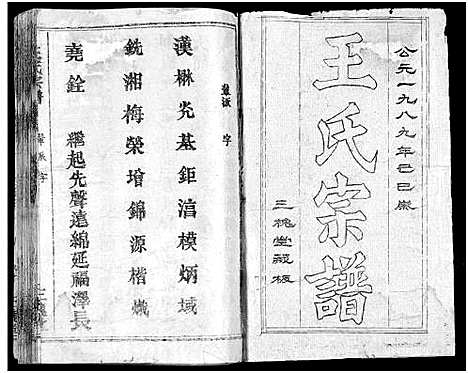 公元一九八九年己巳歲
王氏宗譜
三槐堂藏板
派字
漢楙炎基鉅涫模炳域
銑湘梅榮增錦源楷熾
堯銓
繼起先聲遠綿延福澤長